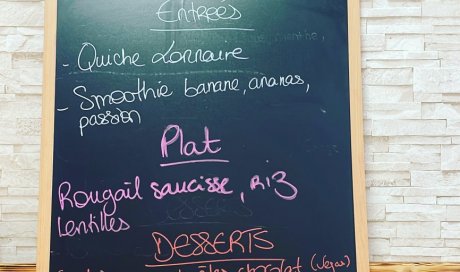 Entrées
- Quiche Lorraine
- Smoothie banane, ananas,
passion
Plat
Rougail saucisse, Riz
lentilles
DESSERTS
chocolat (Vegan)